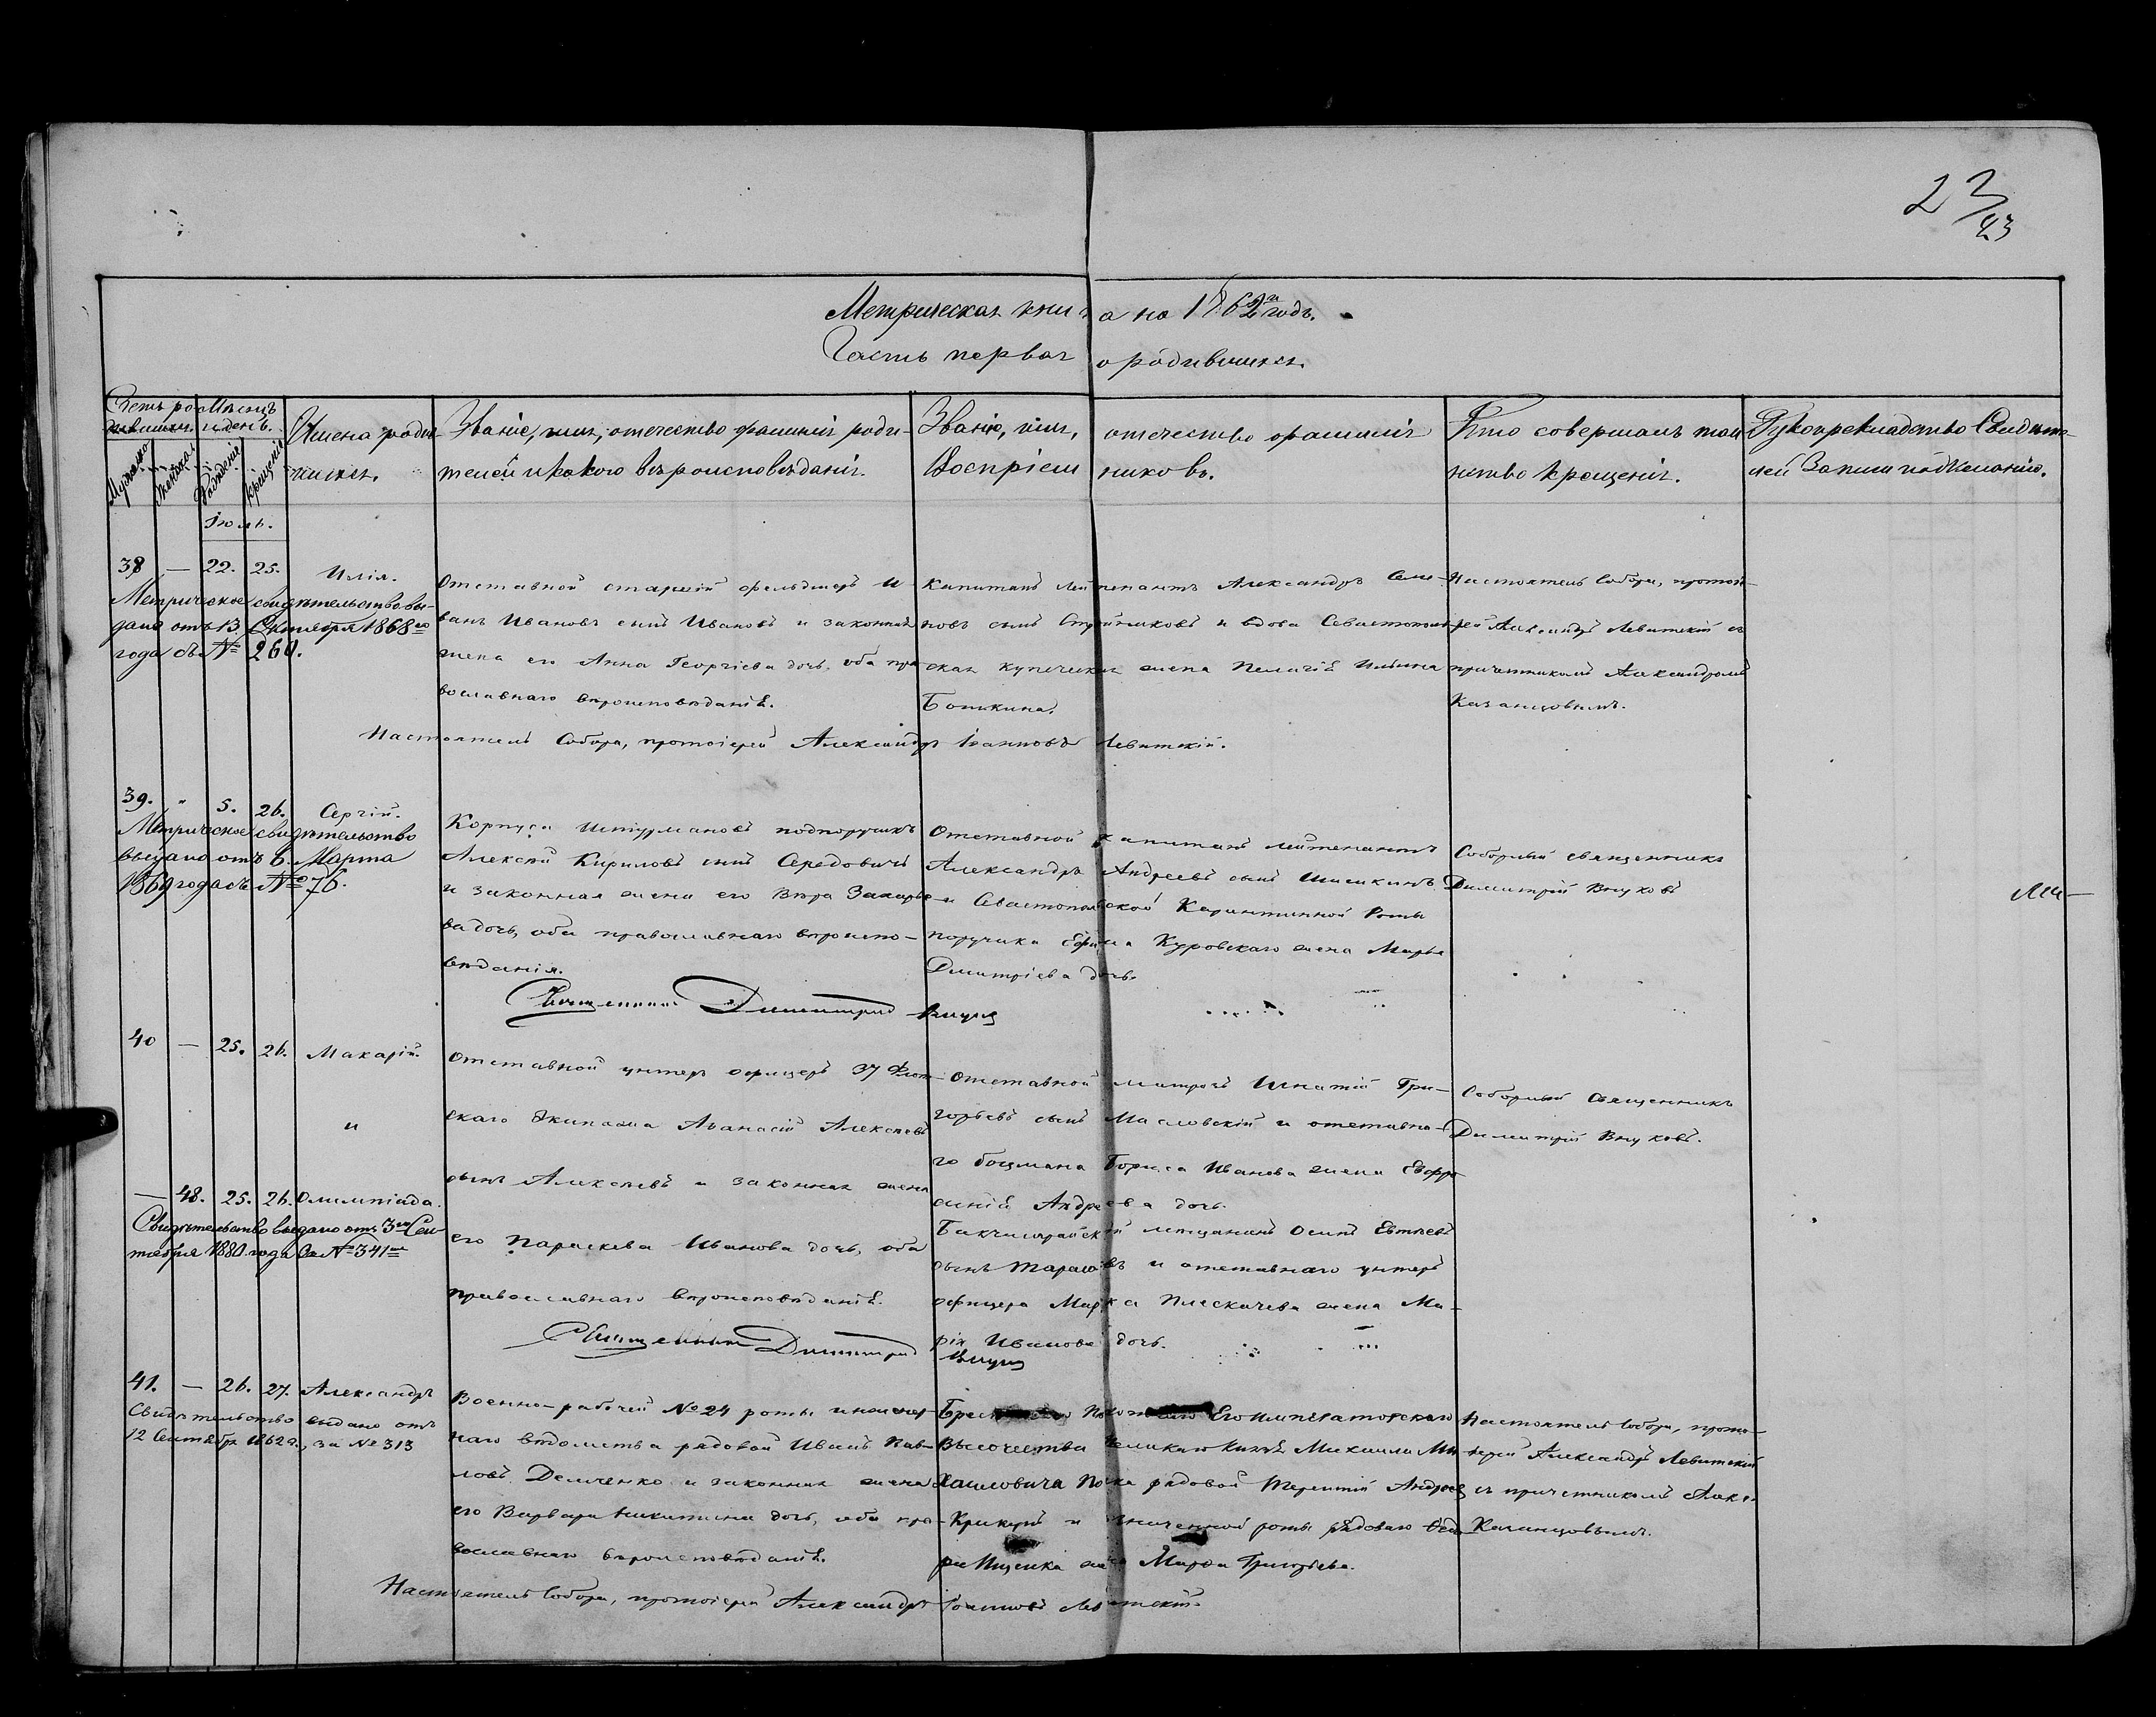 23
Метрическая книга на 1862й годъ.
Часть первая о родившихся.
Счетъ родившихся.
Мужеска
Женска
Мѣсяцъ и день.
Рожденія
Крещенія
Имена родившихся.
Званіе, имя, отечество фамилія роди-
телей и какого вѣроисповѣданія.
Званіе, имя, отечество фамилія
Воспріемниковъ.
Кто совершалъ таи-
нство крещенія.
Рукоприкладство Свидѣте-
лей Записи по желанію.
Іюль.
38 — 22. 25. Илія.
Метрическое свидѣтельство вы-
дано отъ 13 Октября 1868го
года съ № 260.
Отставной старшій фельдшеръ И-
ванъ Ивановъ сынъ Ивановъ и законная
жена его Анна Георгіева дочь, оба пра-
вославнаго вѣроисповѣданія.
Капитанъ Лейтенантъ Александръ Семе-
новъ сынъ и вдова Севастополь-
ская купеческая жена Пелагія Ильина
Бонькина.
Настоятель Собора, протоіе-
рей Александръ Левитскій съ
причетникомъ Александромъ
Казанцовымъ.
Настоятель Собора, протоіерей Александръ Іоанновъ Левитскій.
39. " 5. 26. Сергій.
Метрическое свидѣтельство
выдано отъ 6. Марта
1869 года съ № 76.
Корпуса Штурмановъ подпоручикъ
Алексѣй Кириловъ сынъ Середовичъ
и законная жена его Вѣра Захарье-
ва дочь, оба православнаго вѣроиспо-
вѣданія.
Отставной капитанъ лейтенантъ
Александръ Андреевъ сынъ Шишкинъ
и Севастопольской Карантинной Роты
поручика Ефима Куровскаго жена Марья
Дмитріева дочь.
Соборный священникъ
Димитрій Внуковъ
Священникъ Димитрій Внуковъ
40 — 25. 26. Макарій.
и
— 48. 25. 26. Олимпіада.
Свидѣтельство выдано отъ 3го Сен-
тября 1880 года за № 341м
Отставной унтеръ офицеръ 37 Флот-
скаго Экипажа Аѳанасій Алексѣевъ
сынъ Алексѣевъ и законная жена
его Параскева Иванова дочь, оба
православнаго вѣроисповѣданія.
Отставной матросъ Игнатій Гри-
горьевъ сынъ Масловскій и отставна-
го боцмана Бориса Иванова жена Евфро-
синія Андреева дочь.
Бакчисарайскій мѣщанинъ Осипъ Евтѣевъ
сынъ Тарасовъ и отставнаго унтеръ
офицера Марка Плескачева жена Ма-
рія Иванова дочь.
Соборный Священникъ
Димитрій Внуковъ.
Священникъ Димитрій Внуковъ
41. — 26. 27. Александръ
Свидѣтельство выдано отъ
12 Сентября 1862 г., за № 313
Военно-рабочей № 24 роты инженер-
наго вѣдомства рядовой Иванъ Пав-
ловъ Демченко и законная жена
его Варвара Никитина дочь, оба пра-
вославнаго вѣроисповѣданія.
Его Императорскаго
Высочества Великаго Князя Михаила Ми-
хаиловича Полка рядовой Терентій Андреевъ
и роты рядоваго Ѳедо-
ра Ищенка жена Марѳа Григорьева.
Настоятель Собора, прото-
іерей Александръ Левитскій
съ причетникомъ Алек.
Казанцовымъ.
Настоятель Собора, протоіерей Александръ Іоанновъ Левитскій.